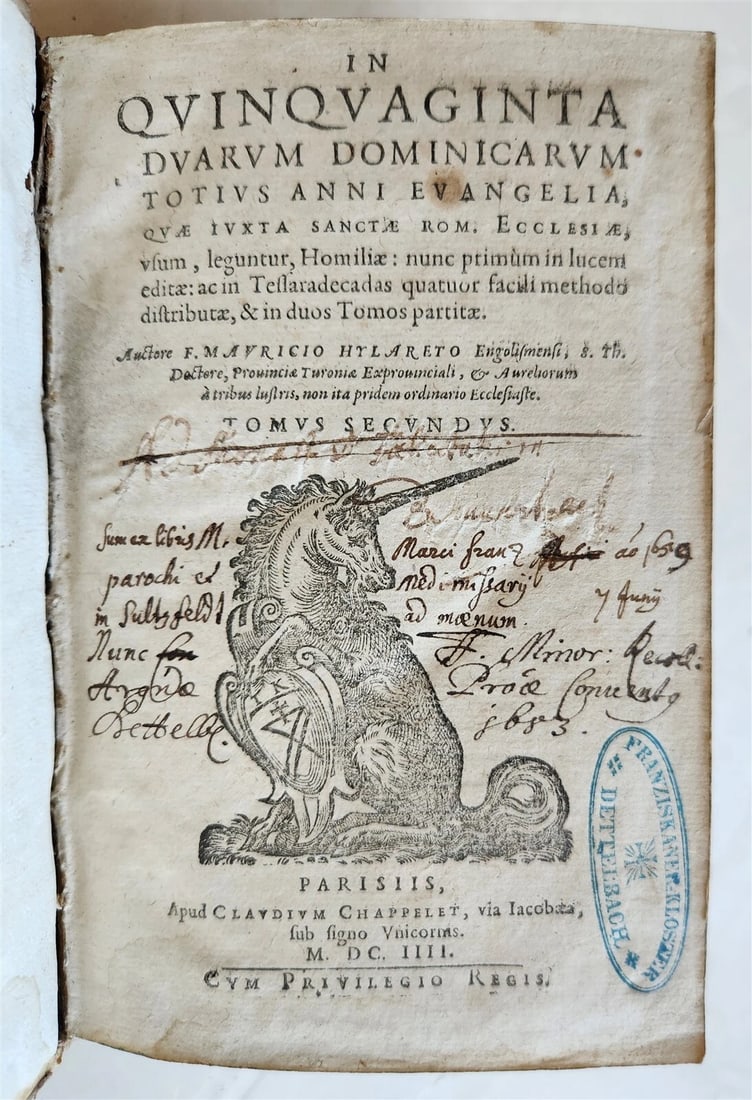 IN
QVINQVAGINTA
DVARVM DOMINICARVM
TOTIVS ANNI EVANGELIA,
QVÆ IVXTA SANCTÆ ROM. ECCLESIÆ,
vſum, leguntur, Homiliæ: nunc primùm in lucem
editæ: ac in Teſſaradecadas quatuor facili methodo
diſtributæ, & in duos Tomos partitæ.
Auctore F. MAVRICIO HYLARETO Engoliſmenſi, S. Th.
Doctore, Prouinciæ Turoniæ Exprouinciali, & Aureliorum
à tribus luſtris, non ita pridem ordinario Eccleſiaſte.
TOMVS SECVNDVS.
Sum ex libris M. Marci franz aō 1659
parochi et nedimissarij 7 Junij
in Sultzfeldt ad mœnum.
Nunc F. Minor: Recoll:
Argdæ Proæ Conuentq
Dettelb. 1653.
PARISIIS,
Apud CLAVDIVM CHAPPELET, via Iacobæa,
ſub ſigno Vnicornis.
M. DC. IIII.
CVM PRIVILEGIO REGIS.
FRANZISKANER-KLOSTER
DETTELBACH.